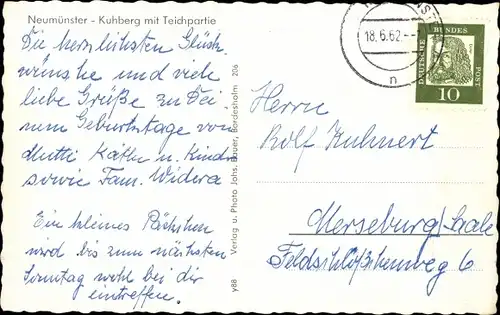 Neumünster - Kuhberg mit Teichpartie
Die herzlichsten Glück-
wünsche und viele
liebe Grüße zu Dei-
nem Geburtstage von
Mutti Käthe u. Kinder
sowie Fam. Widera
Ein kleines Päckchen
wird bis zum nächsten
Sonntag wohl bei dir
eintreffen.
y88 Verlag u. Photo Johs. Bauer, Bordesholm 206
18.6.62.
n
DEUTSCHE BUNDESPOST
10
Herrn
Rolf Kuhnert
Merseburg/Saale
Feldschlößchenweg 6